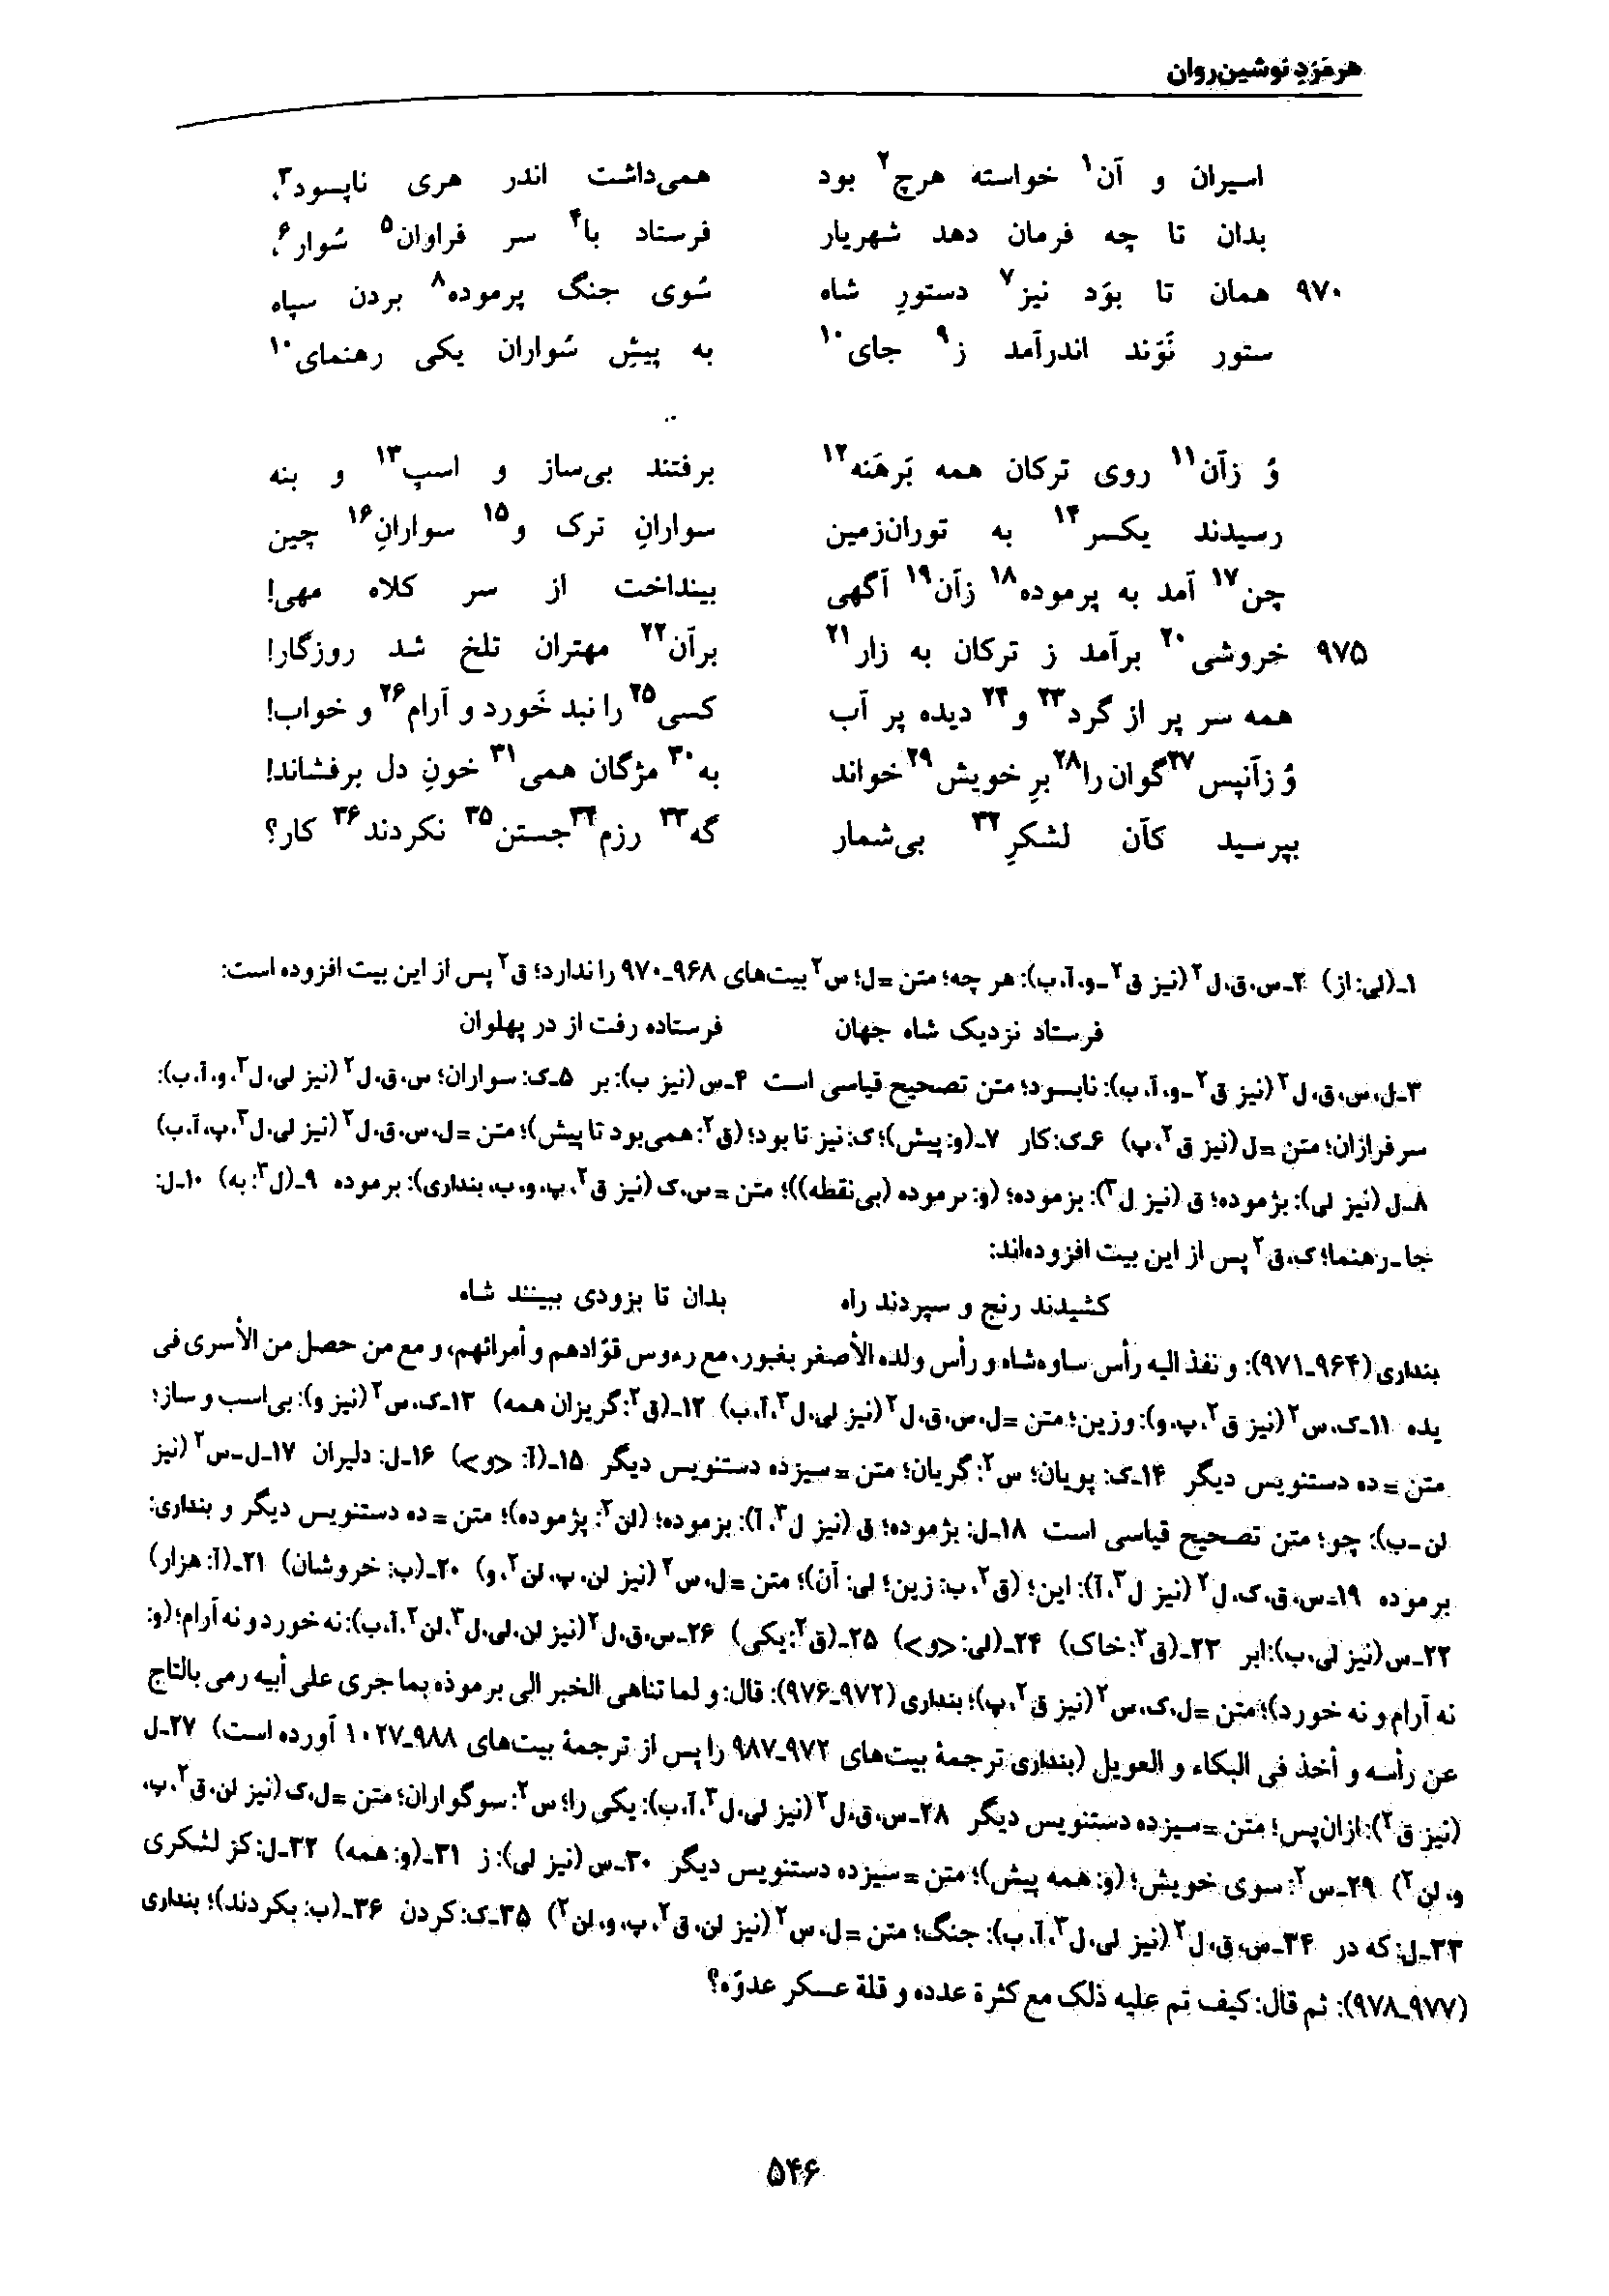 هرمَزدِ نوشین‌روان
اسیران و آن۱ خواسته هرچ۲ بود همی‌داشت اندر هری ناپسود۳،
بدان تا چه فرمان دهد شهریار فرستاد با۴ سر فراوان۵ سُوار۶،
۹۷۰ همان تا بوَد نیز۷ دستورِ شاه سُوی جنگ پرموده۸ بردن سپاه
ستور نَوَند اندرآمد ز۹ جای۱۰ به پیشِ سُواران یکی رهنمای۱۰
وُ زآن۱۱ روی ترکان همه بَرهَنه۱۲ برفتند بی‌ساز و اسپ۱۳ و بنه
رسیدند یکسر۱۴ به توران‌زمین سوارانِ ترک و۱۵ سوارانِ۱۶ چین
چن۱۷ آمد به پرموده۱۸ زآن۱۹ آگهی بینداخت از سر کلاه مهی!
۹۷۵ خروشی۲۰ برآمد ز ترکان به زار۲۱ برآن۲۲ مهتران تلخ شد روزگار!
همه سر پر از گرد۲۳ و۲۴ دیده پر آب کسی۲۵ را نبد خَورد و آرام۲۶ و خواب!
وُ زآنپس۲۷ گوان را۲۸ برِ خویش۲۹ خواند به۳۰ مژگان همی۳۱ خونِ دل برفشاند!
بپرسید کآن لشکرِ۳۲ بی‌شمار گه۳۳ رزم۳۴ جستن۳۵ نکردند۳۶ کار؟
۱ـ(لی: از) ۲ـس، ق، ل۲ (نیز ق۲ ـو، آ، ب): هر چه؛ متن =ل؛ س۲ بیت‌های ۹۶۸ـ۹۷۰ را ندارد؛ ق۲ پس از این بیت افزوده است:
فرستاد نزدیک شاه جهان فرستاده رفت از در پهلوان
۳ـل، س، ق، ل۲ (نیز ق۲ ـو، آ، ب): نابسود؛ متن تصحیح قیاسی است ۴ـس (نیز ب): بر ۵ـک: سواران؛ س، ق، ل۲ (نیز لی، ل۳، و، آ، ب):
سرفرازان؛ متن =ل (نیز ق۲، پ) ۶ـک: کار ۷ـ(و: پیش)؛ ک: نیز تا بود؛ (ق۲: همی‌بود تا پیش)؛ متن =ل، س، ق، ل۲ (نیز لی، ل۳، پ، آ، ب)
۸ـل (نیز لی): بژموده؛ ق (نیز ل۳): بزموده؛ (و: ٮرموده (بی‌نقطه))؛ متن =س، ک (نیز ق۲، پ، و، ب، بنداری): برموده ۹ـ(ل۳: به) ۱۰ـل:
جا ـ رهنما؛ ک، ق۲ پس از این بیت افزوده‌اند:
کشیدند رنج و سپردند راه بدان تا بزودی ببینند شاه
بنداری (۹۶۴ـ۹۷۱): و نفذ الیه رأس ساوه‌شاه و رأس ولده الأصغر بغبور، مع رءوس قوّادهم و أمرائهم، و مع من حصل من الأسری فی
یده ۱۱ـک، س۲ (نیز ق۲، پ، و): وزین؛ متن =ل، س، ق، ل۲ (نیز لی، ل۳، آ، ب) ۱۲ـ(ق۲: گریزان همه) ۱۳ـک، س۲ (نیز و): بی‌اسب و ساز؛
متن =ده دستنویس دیگر ۱۴ـک: پویان؛ س۲: گریان؛ متن =سیزده دستنویس دیگر ۱۵ـ(آ: <و>) ۱۶ـل: دلیران ۱۷ـل ـ س۲ (نیز
لن ـ ب): چو؛ متن تصحیح قیاسی است ۱۸ـل: بژموده؛ ق (نیز ل۳، آ): بزموده؛ (لن۲: پژموده)؛ متن =ده دستنویس دیگر و بنداری:
برموده ۱۹ـس، ق، ک، ل۲ (نیز ل۳، آ): این؛ (ق۲، ب: زین؛ لی: آن)؛ متن =ل، س۲ (نیز لن، پ، لن۲، و) ۲۰ـ(ب: خروشان) ۲۱ـ(آ: هزار)
۲۲ـس (نیز لی، ب): ابر ۲۳ـ(ق۲: خاک) ۲۴ـ(لی: <و>) ۲۵ـ(ق۲: یکی) ۲۶ـس، ق، ل۲ (نیز لن، لی، ل۳، لن۲، آ، ب): نه خورد و نه آرام؛ (و:
نه آرام و نه خورد)؛ متن =ل، ک، س۲ (نیز ق۲، پ)؛ بنداری (۹۷۲ـ۹۷۶): قال: و لما تناهی الخبر الی برموذه بما جری علی أبیه رمی بالتاج
عن رأسه و أخذ فی البکاء و العویل (بنداری ترجمهٔ بیت‌های ۹۷۲ـ۹۸۷ را پس از ترجمهٔ بیت‌های ۹۸۸ـ۱۰۲۷ آورده است) ۲۷ـل
(نیز ق۲): ازان‌پس؛ متن =سیزده دستنویس دیگر ۲۸ـس، ق، ل۲ (نیز لی، ل۳، آ، ب): یکی را؛ س۲: سوگواران؛ متن =ل، ک (نیز لن، ق۲، پ،
و، لن۲) ۲۹ـس۲: سوی خویش؛ (و: همه پیش)؛ متن =سیزده دستنویس دیگر ۳۰ـس (نیز لی): ز ۳۱ـ(و: همه) ۳۲ـل: کز لشکری
۳۳ـل: که در ۳۴ـس، ق، ل۲ (نیز لی، ل۳، آ، ب): جنگ؛ متن =ل، س۲ (نیز لن، ق۲، پ، و، لن۲) ۳۵ـک: کردن ۳۶ـ(ب: بکردند)؛ بنداری
(۹۷۷ـ۹۷۸): ثم قال: کیف تم علیه ذلک مع کثرة عدده و قلة عسکر عدوّه؟
۵۴۶